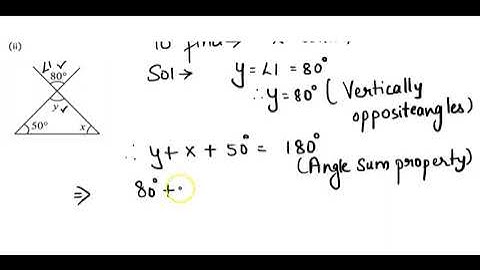 (ii)
∠1 ✓
80°
y ✓
50°
x
To find →
Sol → y = ∠1 = 80°
∴ y = 80° (Vertically
oppositeangles)
∴ y + x + 50° = 180°
(Angle sum property)
⇒ 80° +